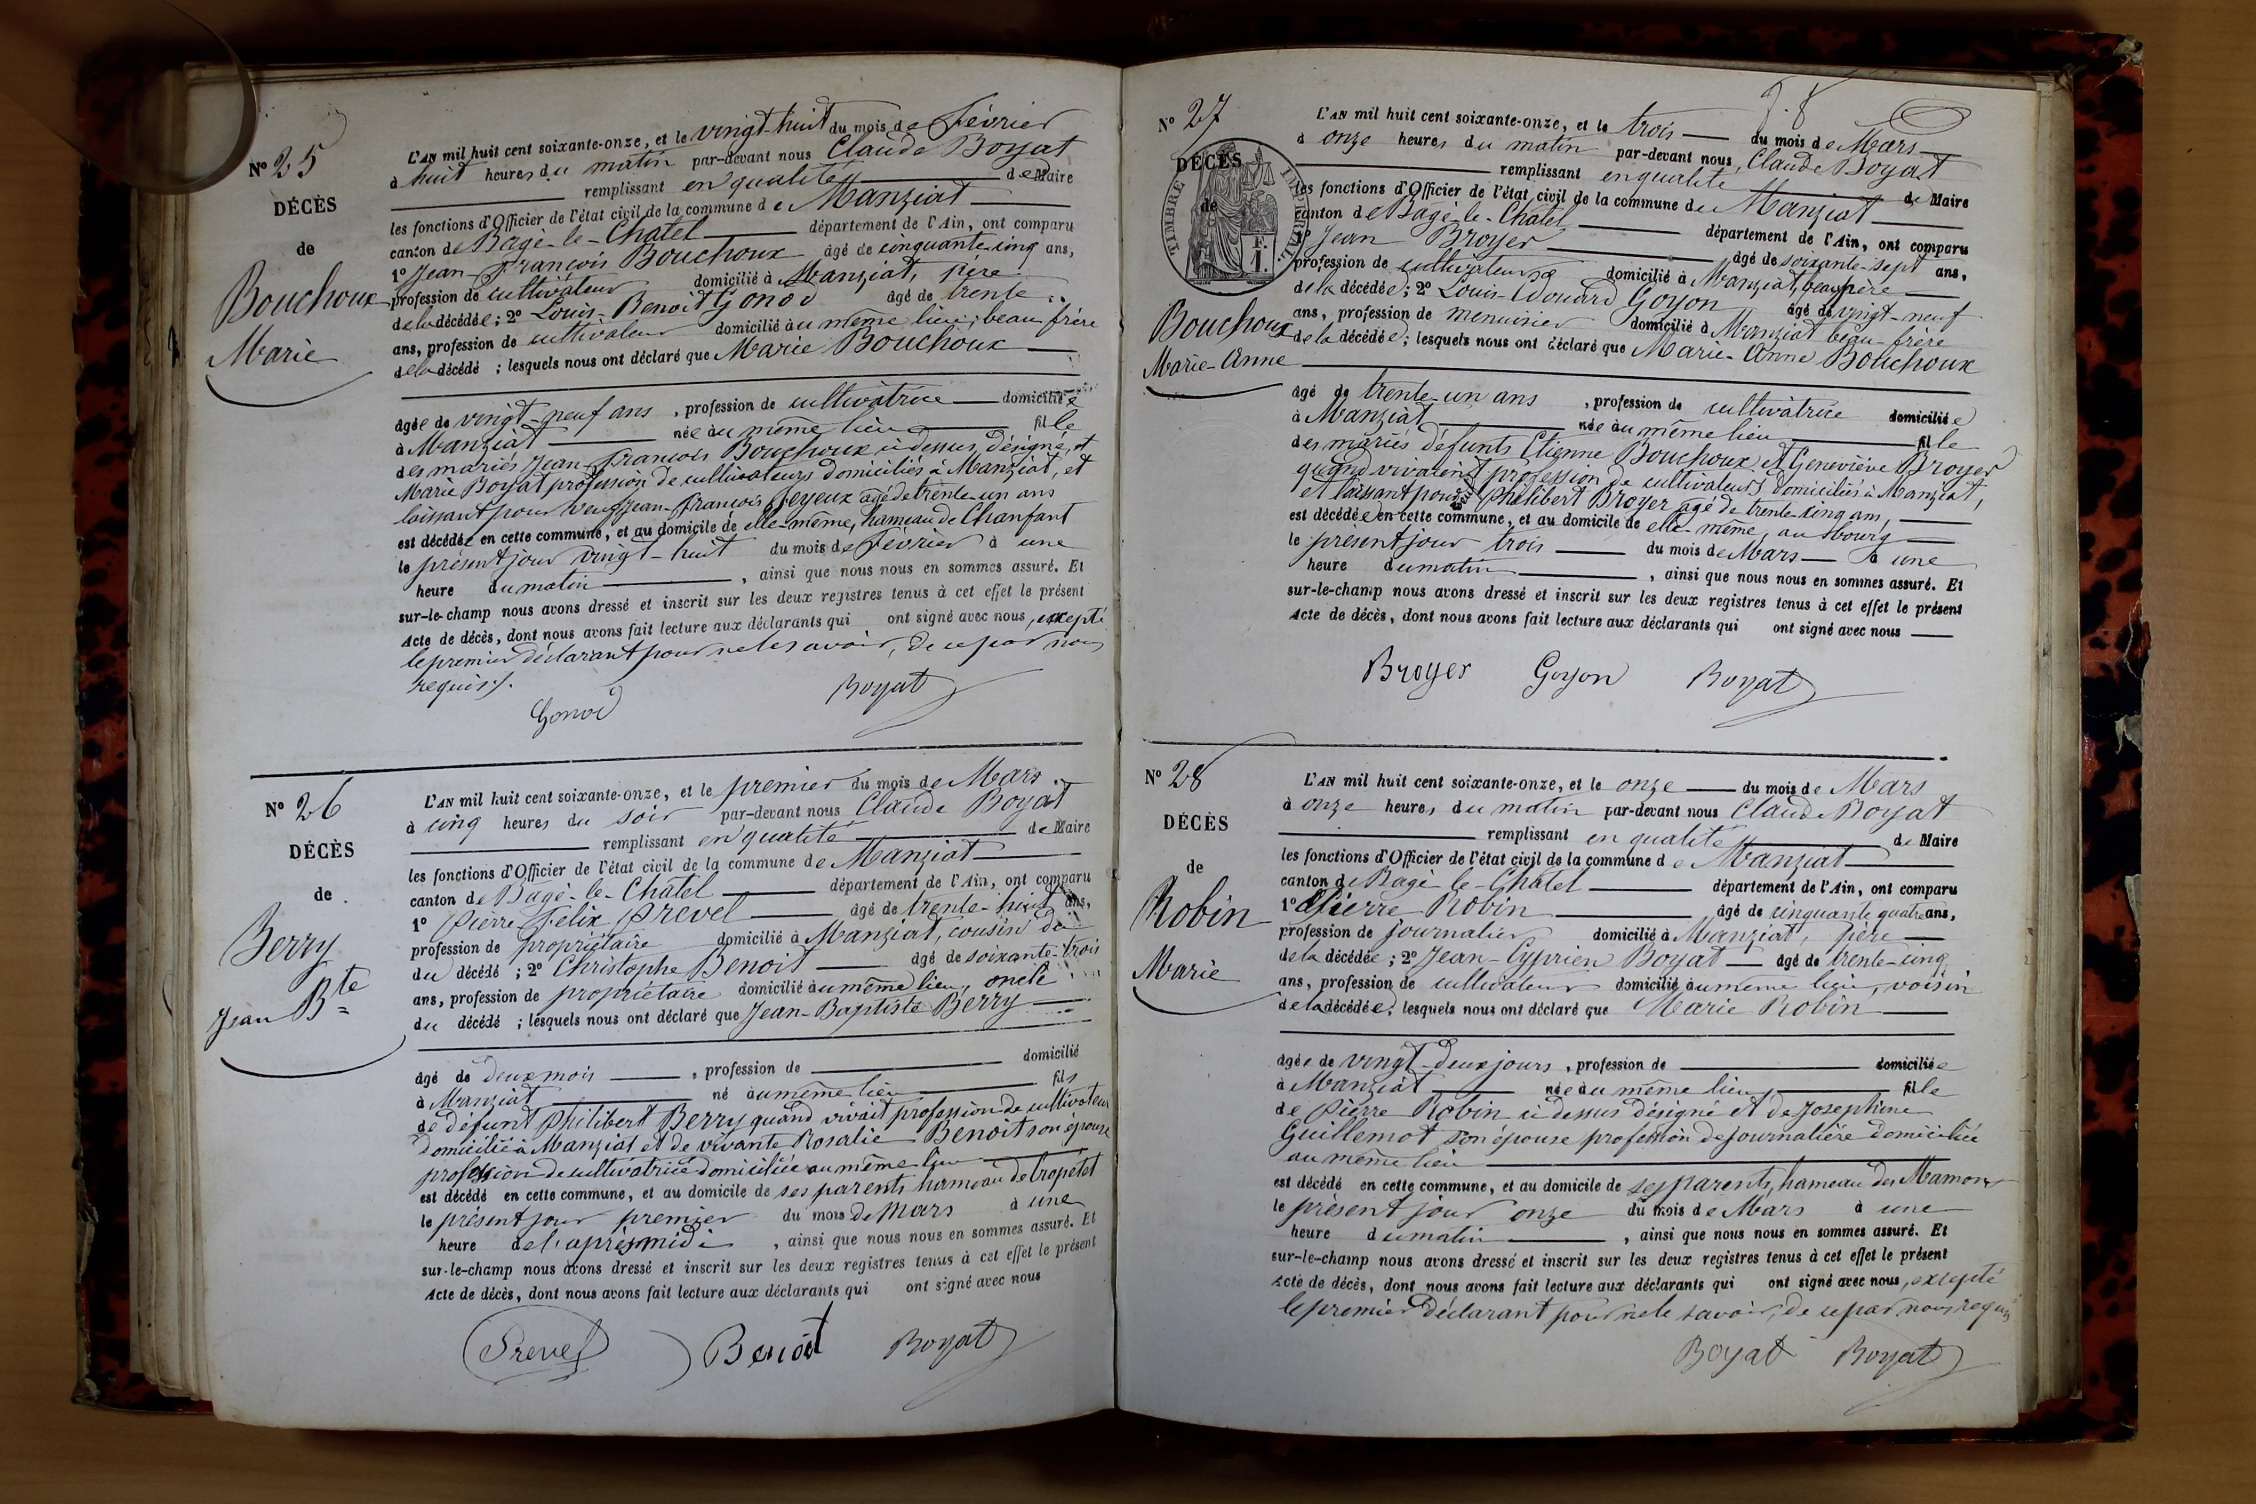 N° 25
DÉCÈS
de
Bouchoux
Marie
L'AN mil huit cent soixante-onze, et le vingt-huit du mois de Février
à huit heures du matin par-devant nous Claude Boyat
remplissant en qualité de Maire
les fonctions d'Officier de l'état civil de la commune de Manziat
canton de Bagé-le-Châtel département de l'Ain, ont comparu
1° Jean-François Bouchoux âgé de cinquante-cinq ans,
profession de cultivateur domicilié à Manziat, père
de la décédée ; 2° Louis-Benoit Gonod âgé de trente
ans, profession de cultivateur domicilié au même lieu, beau frère
de la décédé ; lesquels nous ont déclaré que Marie Bouchoux
âgée de vingt-neuf ans , profession de cultivatrice domiciliée
à Manziat née au même lieu fille
des mariés Jean-François Bouchoux ci dessus désigné, et
Marie Boyat profession de cultivateurs domiciliés à Manziat, et
laissant pour veuf Jean-François Feyeux âgé de trente-un ans
est décédée en cette commune, et au domicile de elle-même, hameau de Chanfant
le présent jour vingt-huit du mois de Février à une
heure du matin , ainsi que nous nous en sommes assuré. Et
sur-le-champ nous avons dressé et inscrit sur les deux registres tenus à cet effet le présent
Acte de décès, dont nous avons fait lecture aux déclarants qui ont signé avec nous, excepté
le premier déclarant pour ne le savoir, de ce par nous
requis.
Gonod Boyat
N° 26
DÉCÈS
de
Berry
Jean Bte
L'AN mil huit cent soixante-onze, et le premier du mois de Mars
à cinq heures du soir par-devant nous Claude Boyat
remplissant en qualité de Maire
les fonctions d'Officier de l'état civil de la commune de Manziat
canton de Bagé-le-Châtel département de l'Ain, ont comparu
1° Pierre Felix Prevel âgé de trente-huit ans,
profession de propriétaire domicilié à Manziat, cousin de
du décédé ; 2° Christophe Benoit âgé de soixante-trois
ans, profession de propriétaire domicilié au même lieu, oncle
du décédé ; lesquels nous ont déclaré que Jean-Baptiste Berry
âgé de deux mois , profession de domicilié
à Manziat né au même lieu fils
de défunt Philibert Berry quand vivait profession de cultivateur
domicilié à Manziat et de vivante Rosalie Benoit son épouse
profession de cultivatrice domiciliée au même lieu
est décédé en cette commune, et au domicile de ses parents hameau de Cropetet
le présent jour premier du mois de Mars à une
heure de l'après midi , ainsi que nous nous en sommes assuré. Et
sur-le-champ nous avons dressé et inscrit sur les deux registres tenus à cet effet le présent
Acte de décès, dont nous avons fait lecture aux déclarants qui ont signé avec nous
Prevel Benoit Boyat
N° 27
DÉCÈS
de
TIMBRE IMPÉRIAL
F.
1.
Bouchoux
Marie-Anne
L'AN mil huit cent soixante-onze, et le trois du mois de Mars
à onze heures du matin par-devant nous Claude Boyat
remplissant en qualité de Maire
les fonctions d'Officier de l'état civil de la commune de Manziat
canton de Bagé-le-Châtel département de l'Ain, ont comparu
Jean Broyer âgé de soixante-sept ans,
profession de cultivateur domicilié à Manziat, beau père
de la décédée ; 2° Louis-Edouard Goyon âgé de vingt-neuf
ans, profession de menuisier domicilié à Manziat beau-frère
de la décédée ; lesquels nous ont déclaré que Marie-Anne Bouchoux
âgé de trente-un ans , profession de cultivatrice domiciliée
à Manziat née au même lieu fille
des mariés défunts Etienne Bouchoux et Geneviève Broyer
quand vivaient profession de cultivateurs domiciliés à Manziat,
et laissant pour veuf Philibert Broyer âgé de trente-cinq ans,
est décédée en cette commune, et au domicile de elle-même, au bourg
le présent jour trois du mois de Mars à une
heure du matin , ainsi que nous nous en sommes assuré. Et
sur-le-champ nous avons dressé et inscrit sur les deux registres tenus à cet effet le présent
Acte de décès, dont nous avons fait lecture aux déclarants qui ont signé avec nous
Broyer Goyon Boyat
N° 28
DÉCÈS
de
Robin
Marie
L'AN mil huit cent soixante-onze, et le onze du mois de Mars
à onze heures du matin par-devant nous Claude Boyat
remplissant en qualité de Maire
les fonctions d'Officier de l'état civil de la commune de Manziat
canton de Bagé-le-Châtel département de l'Ain, ont comparu
1° Pierre Robin âgé de cinquante quatre ans,
profession de journalier domicilié à Manziat, père
de la décédée ; 2° Jean-Cyprien Boyat âgé de trente-cinq
ans, profession de cultivateur domicilié au même lieu, voisin
de la décédée, lesquels nous ont déclaré que Marie Robin
âgée de vingt-deux jours , profession de domiciliée
à Manziat née au même lieu fille
de Pierre Robin ci dessus désigné et de Josephine
Guillemot son épouse profession de journalière domiciliée
au même lieu
est décédé en cette commune, et au domicile de ses parents, hameau des Mamons
le présent jour onze du mois de Mars à une
heure du matin , ainsi que nous nous en sommes assuré. Et
sur-le-champ nous avons dressé et inscrit sur les deux registres tenus à cet effet le présent
Acte de décès, dont nous avons fait lecture aux déclarants qui ont signé avec nous, excepté
le premier déclarant pour ne le savoir, de ce par nous requis
Boyat Boyat